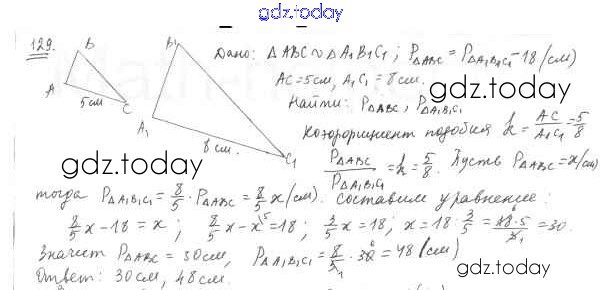 gdz.today
129.
B
A
5см
C
B1
A1
8 см.
C1
Дано: ΔABC ∾ ΔA1B1C1; PΔABC = PΔA1B1C1 - 18 (см)
AC = 5см, A1C1 = 8см.
gdz.today
Найти: PΔABC, PΔA1B1C1
Коэффициент подобия k = AC/A1C1 = 5/8
gdz.today
PΔABC/PΔA1B1C1 = k = 5/8. Пусть PΔABC = x (см)
тогда PΔA1B1C1 = 8/5 · PΔABC = 8/5 x (см). Составим уравнение:
8/5 x - 18 = x; 8/5 x - x = 18; 3/5 x = 18; x = 18 · 3/5 = 18·5/3 = 30.
Значит PΔABC = 30см, PΔA1B1C1 = 8/5 · 30 = 48 (см)
Ответ: 30см, 48см.
gdz.today
gdz.today